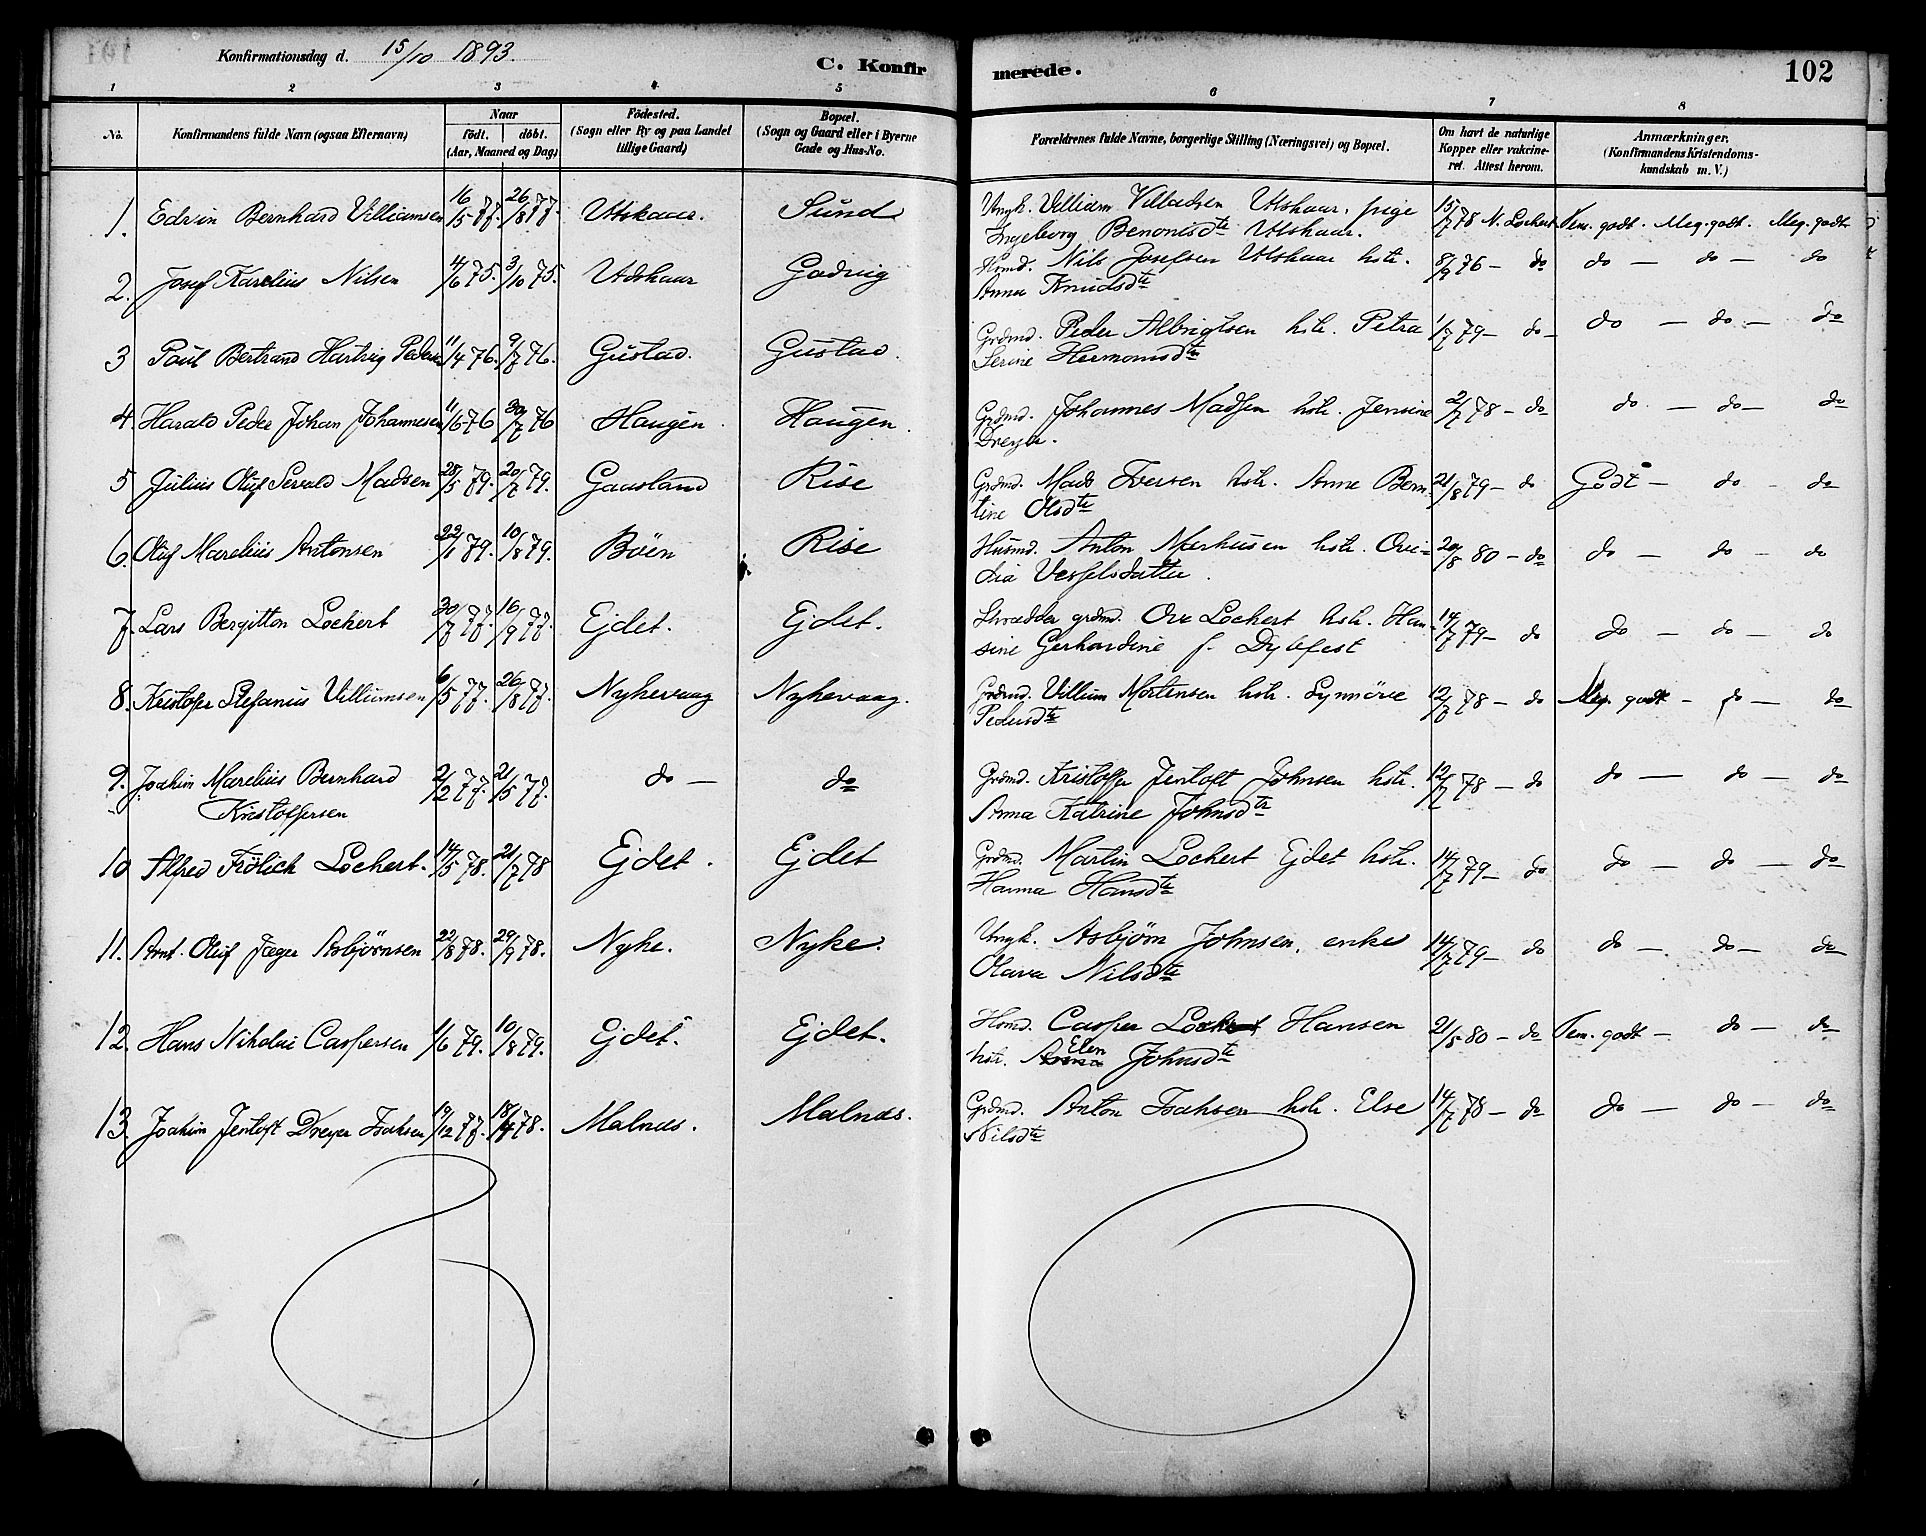 Konfirmationsdag d. 15/10 1893.
C. Konfirmerede.
102
1 2 3 4 5 6 7 8
No. Konfirmandens fulde Navn (ogsaa Efternavn) Naar födt. döbt. (Aar, Maaned og Dag) Födested. (Sogn eller By og paa Landet tillige Gaard) Bopæl. (Sogn og Gaard eller i Byerne Gade og Hus-No. Forældrenes fulde Navne, borgerlige Stilling (Næringsvei) og Bopæl. Om havt de naturlige Kopper eller vakcineret. Attest herom. Anmærkninger. (Konfirmandens Kristendomskundskab m. V.)
1. Edvin Bernhard Villiamsen 16/5 77. 26/8 77. Utskaar. Sund Ungk. Villiam Villadsen Utskaar, pige 15/7 78 N. Lockert Tem. godt. Meg. godt. Meg. godt
Ingeborg Benonisdtr Utskaar.
2. Josef Karelius Nilsen 4/6 75. 3/10 75. Utskaar Gadvig Husmd. Nils Josefsen Utskaar hstr. 8/9 76 – do do – do – do
Anna Knudsdtr
3 Paul Bertrand Hartvig Pedersen 11/4 76. 9/7 76. Gustad. Gustad. Grdmd. Peder Albrigtsen hstr. Petra 1/7 79 – do – do – do – do
Serine Hermansdtr
4. Harald Peder Johan Johannesen 11/6 76 30/7 76 Haugen. Haugen. Grdmd. Johannes Madsen hstr. Jensine 2/7 78 – do do – do – do
Dreyer.
5 Julius Oluf Sevald Madsen 28/5 79. 20/7 79. Gaasland Rise Grdmd. Mads Iversen hstr. Anne Berntine 21/8 79 – do Godt – do – do
Olsdtr
6. Oluf Marelius Antonsen 22/1 79. 10/8 79. Böen Rise Husmd. Anton Markussen hstr. Ovedia 20/8 80 – do do – do – do
Vesselsdatter.
7. Lars Bergitton Lockert 30/7 77. 16/9 77. Ejdet. Ejdet. Skrædder grdmd. Ove Lockert hstr. Hansine 14/7 79 – do do – do – do
Gerhardine f. Dybfest
8. Kristofer Stefanus Villumsen 6/5 77. 26/8 77. Nykevaag Nykevaag. Grdmd. Villum Mortensen hstr. Synnöve 12/7 78 – do Meg. godt – do – do
Pedersdtr
9. Joakim Marelius Bernhard 2/2 77. 21/5 77. do – do Grdmd. Kristoffer Jentoft Johnsen hstr. 12/7 78 – do do – do – do
Kristoffersen Anna Katrine Johnsdtr
10 Alfred Frölich Lockert. 14/5 78. 21/7 78 Ejdet. Ejdet Grdmd. Martin Lockert Ejdet hstr. 14/7 79 – do do – do – do
Hanna Hansdtr
11. Arnt Oluf Jæger Asbjörnsen 22/8 78. 29/9 78. Nyke. Nyke. Ungk. Asbjörn Johnsen, enke 14/7 79 – do do – do – do
Olava Nilsdtr
12. Hans Nikolai Caspersen 11/6 79. 10/8 79. Ejdet. Ejdet. Husmd. Casper Lockert Hansen 21/5 80 – do Tem. godt – do – do
hstr. Anna Elen Johnsdtr
13. Joakim Jentoft Dreyer Isaksen 19/12 77. 18/4 78. Malnæs. Malnæs. Grdmd. Anton Isaksen hstr. Else 14/7 78 – do do – do – do
Nilsdtr